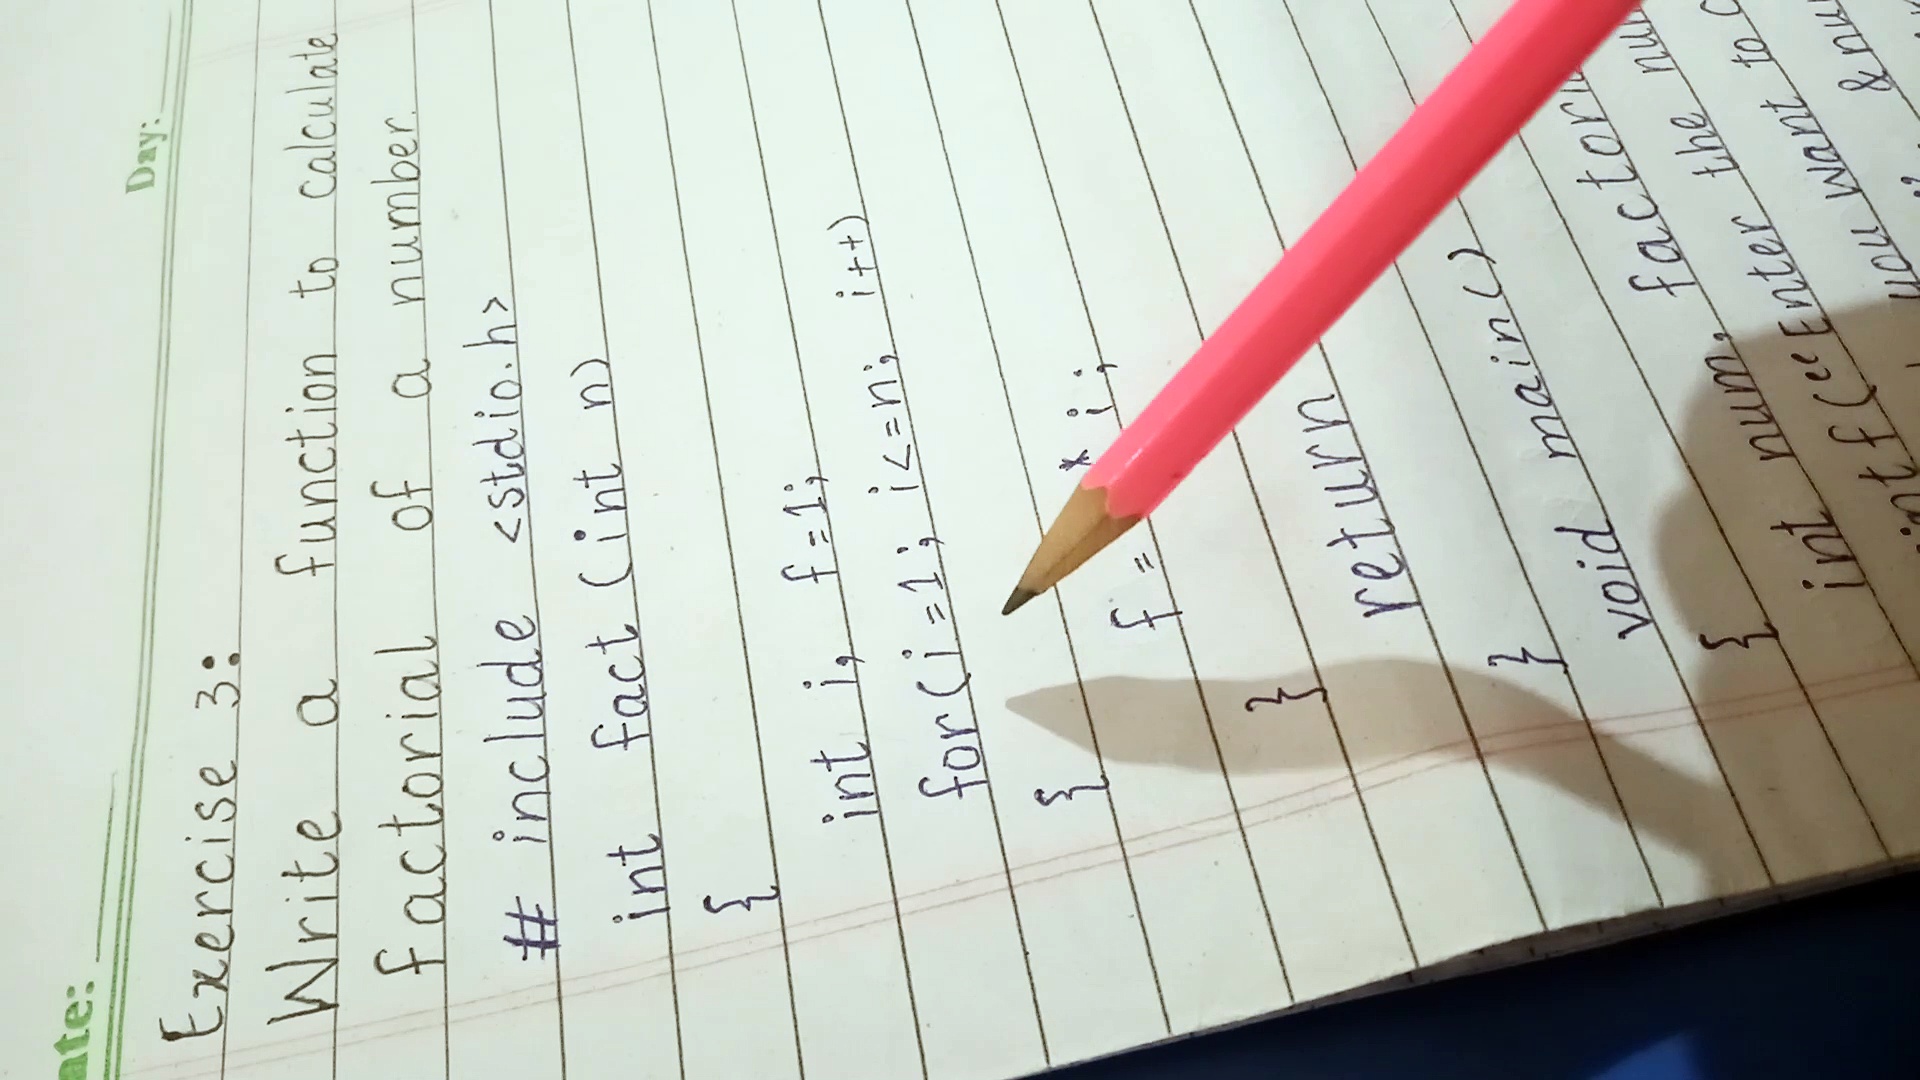 Date: Day:
Exercise 3:
Write a function to calculate
factorial of a number.
# include <stdio.h>
int fact (int n)
{
int i, f=1;
for(i=1; i<=n; i++)
{
f = * i;
}
return
}
void main()
{
int num, factorial
intf(""Enter the num
you want to c
&num